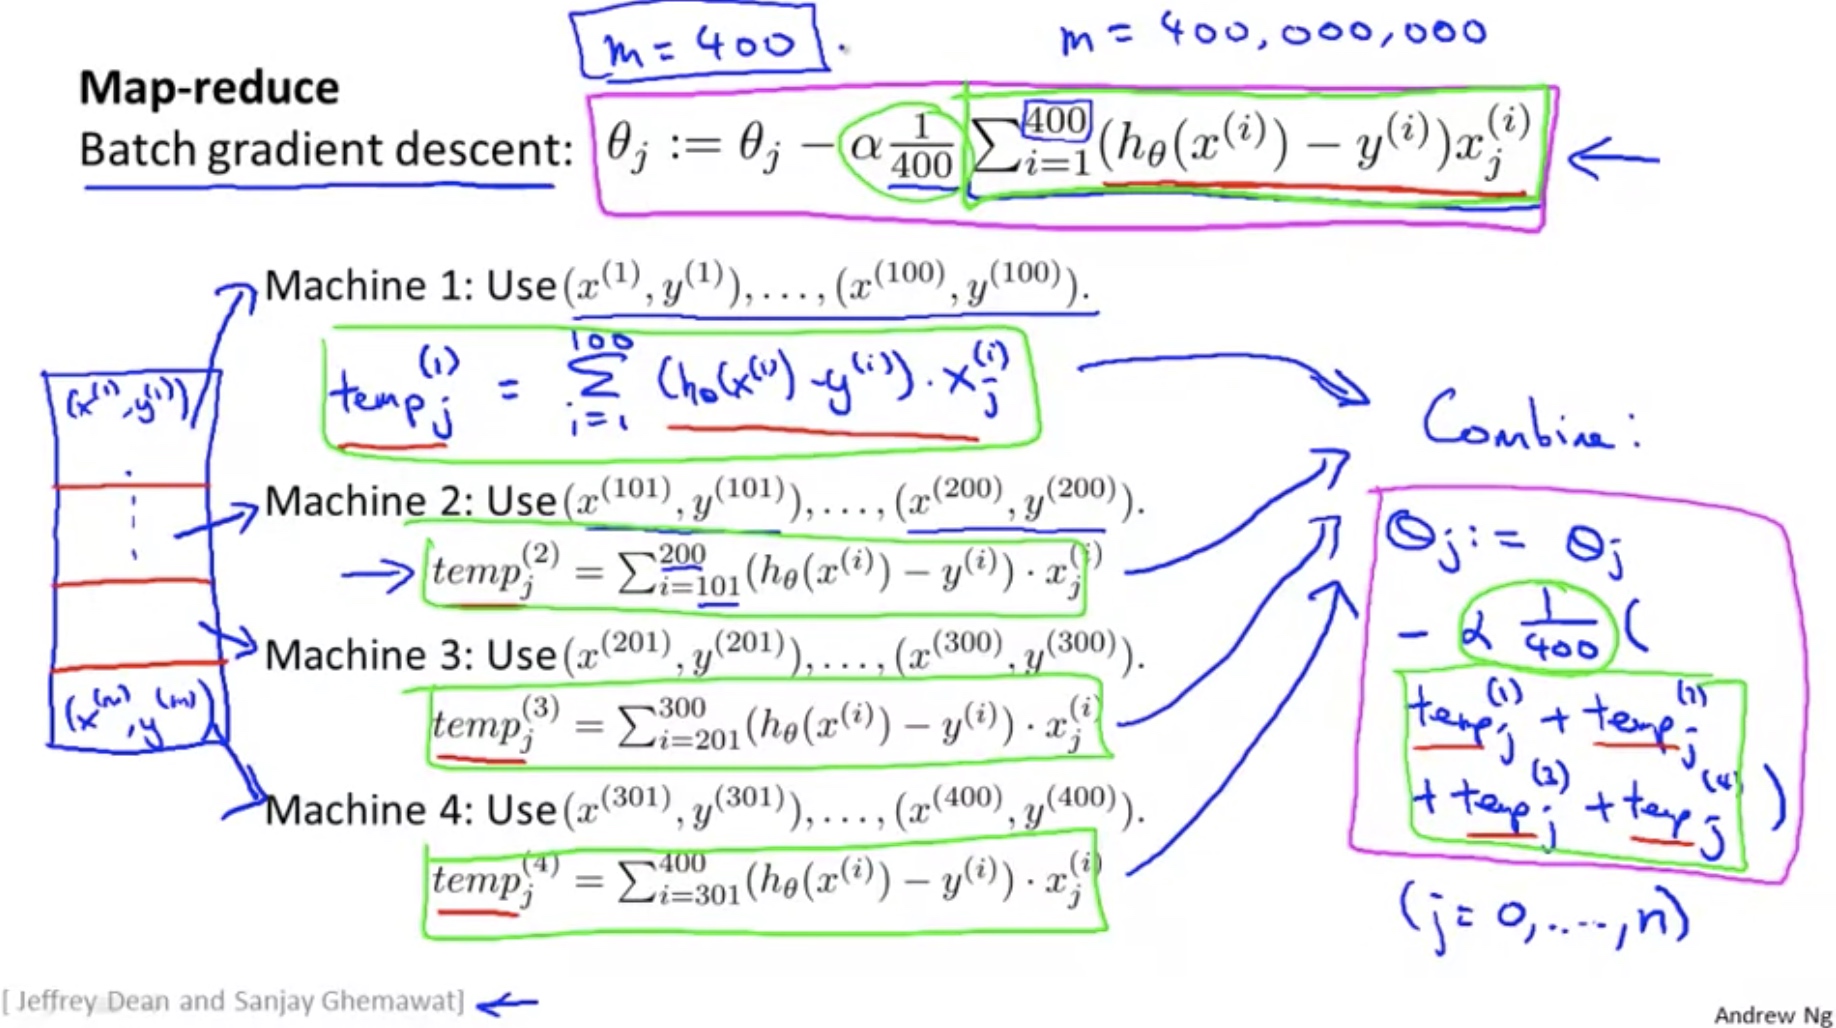 m = 400 .
m = 400,000,000
Map-reduce
Batch gradient descent: θ_j := θ_j − α \frac{1}{400} \sum_{i=1}^{400} (h_θ(x^{(i)}) − y^{(i)})x_j^{(i)}
Machine 1: Use (x^{(1)}, y^{(1)}), . . . , (x^{(100)}, y^{(100)}).
temp_j^{(1)} = \sum_{i=1}^{100} (h_θ(x^{(i)}) - y^{(i)}) · x_j^{(i)}
(x^{(1)}, y^{(1)})
Machine 2: Use (x^{(101)}, y^{(101)}), . . . , (x^{(200)}, y^{(200)}).
temp_j^{(2)} = \sum_{i=101}^{200} (h_θ(x^{(i)}) − y^{(i)}) · x_j^{(i)}
Machine 3: Use (x^{(201)}, y^{(201)}), . . . , (x^{(300)}, y^{(300)}).
temp_j^{(3)} = \sum_{i=201}^{300} (h_θ(x^{(i)}) − y^{(i)}) · x_j^{(i)}
(x^{(m)}, y^{(m)})
Machine 4: Use (x^{(301)}, y^{(301)}), . . . , (x^{(400)}, y^{(400)}).
temp_j^{(4)} = \sum_{i=301}^{400} (h_θ(x^{(i)}) − y^{(i)}) · x_j^{(i)}
Combine:
θ_j := θ_j
- α \frac{1}{400} (
temp_j^{(1)} + temp_j^{(2)}
+ temp_j^{(3)} + temp_j^{(4)} )
(j = 0, ...., n)
[ Jeffrey Dean and Sanjay Ghemawat]
Andrew Ng